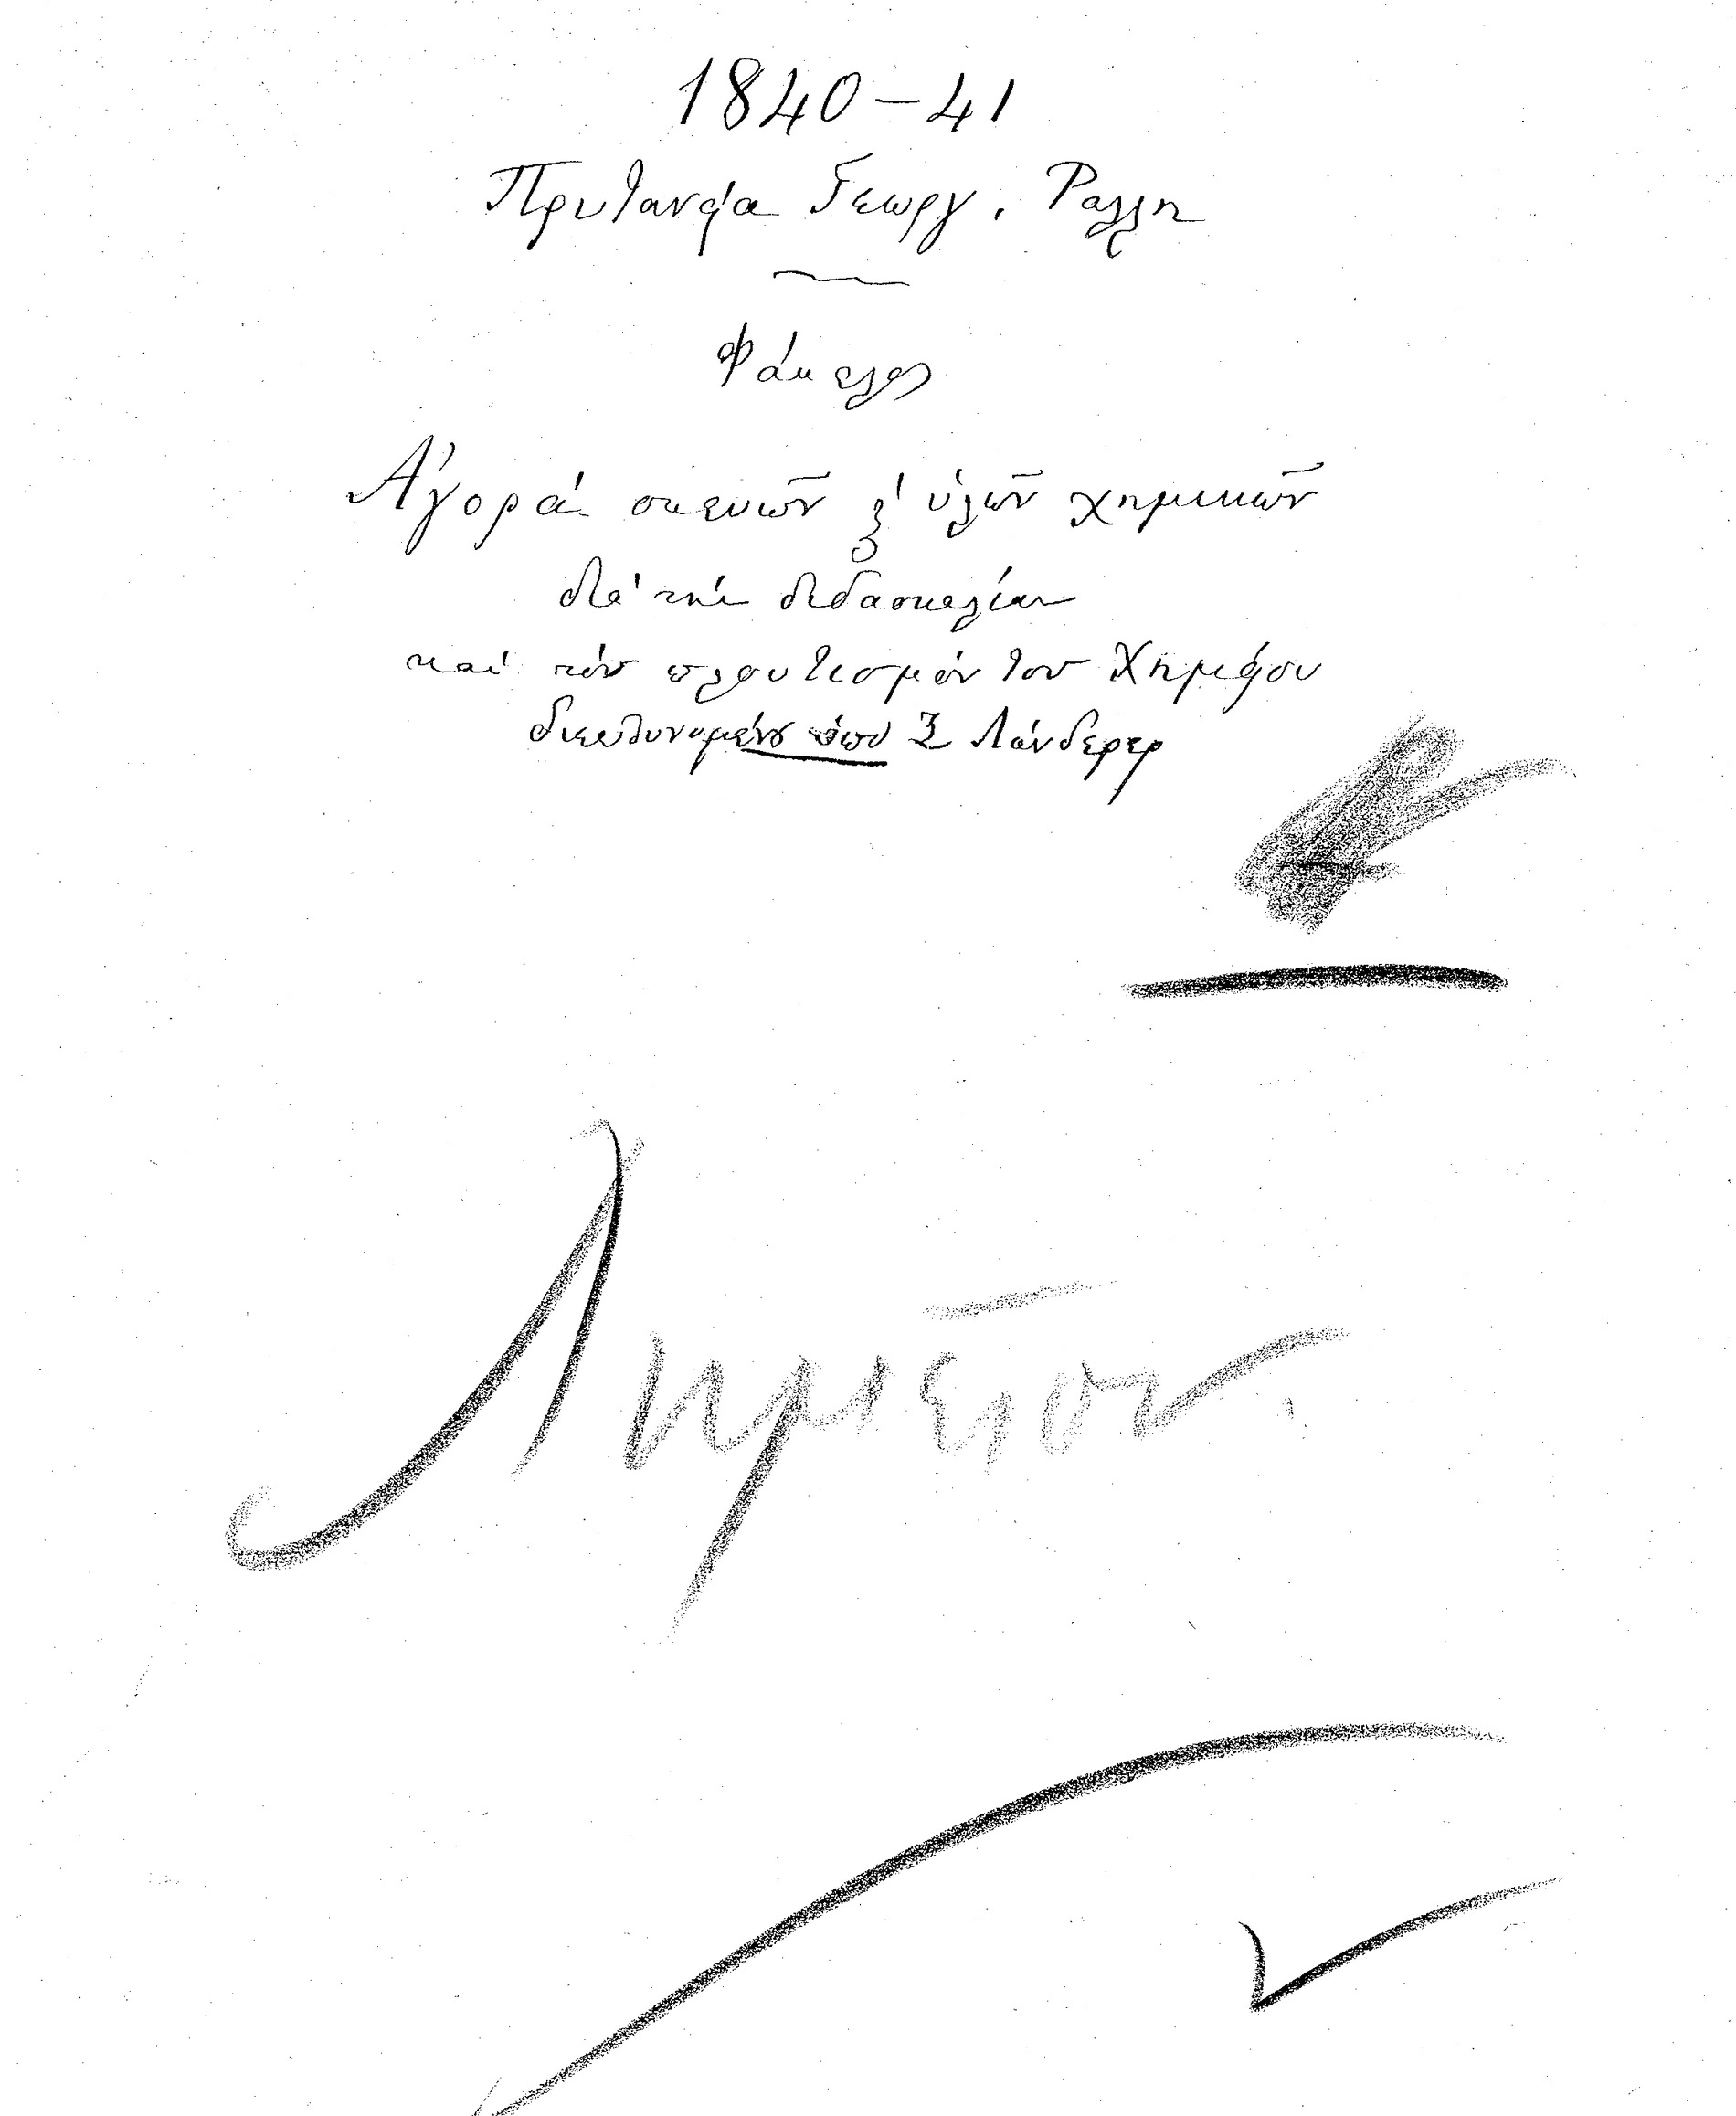 1840-41
Πρυτανεία Γεωργ. Ραλλη
Φάκελος
Ἀγορά σκευῶν & ὑλῶν χημικῶν
διά τήν διδασκαλίαν
καί τόν πλουτισμόν του Χημείου
διευθυνομένου ὑπό Ξ Λάνδερερ